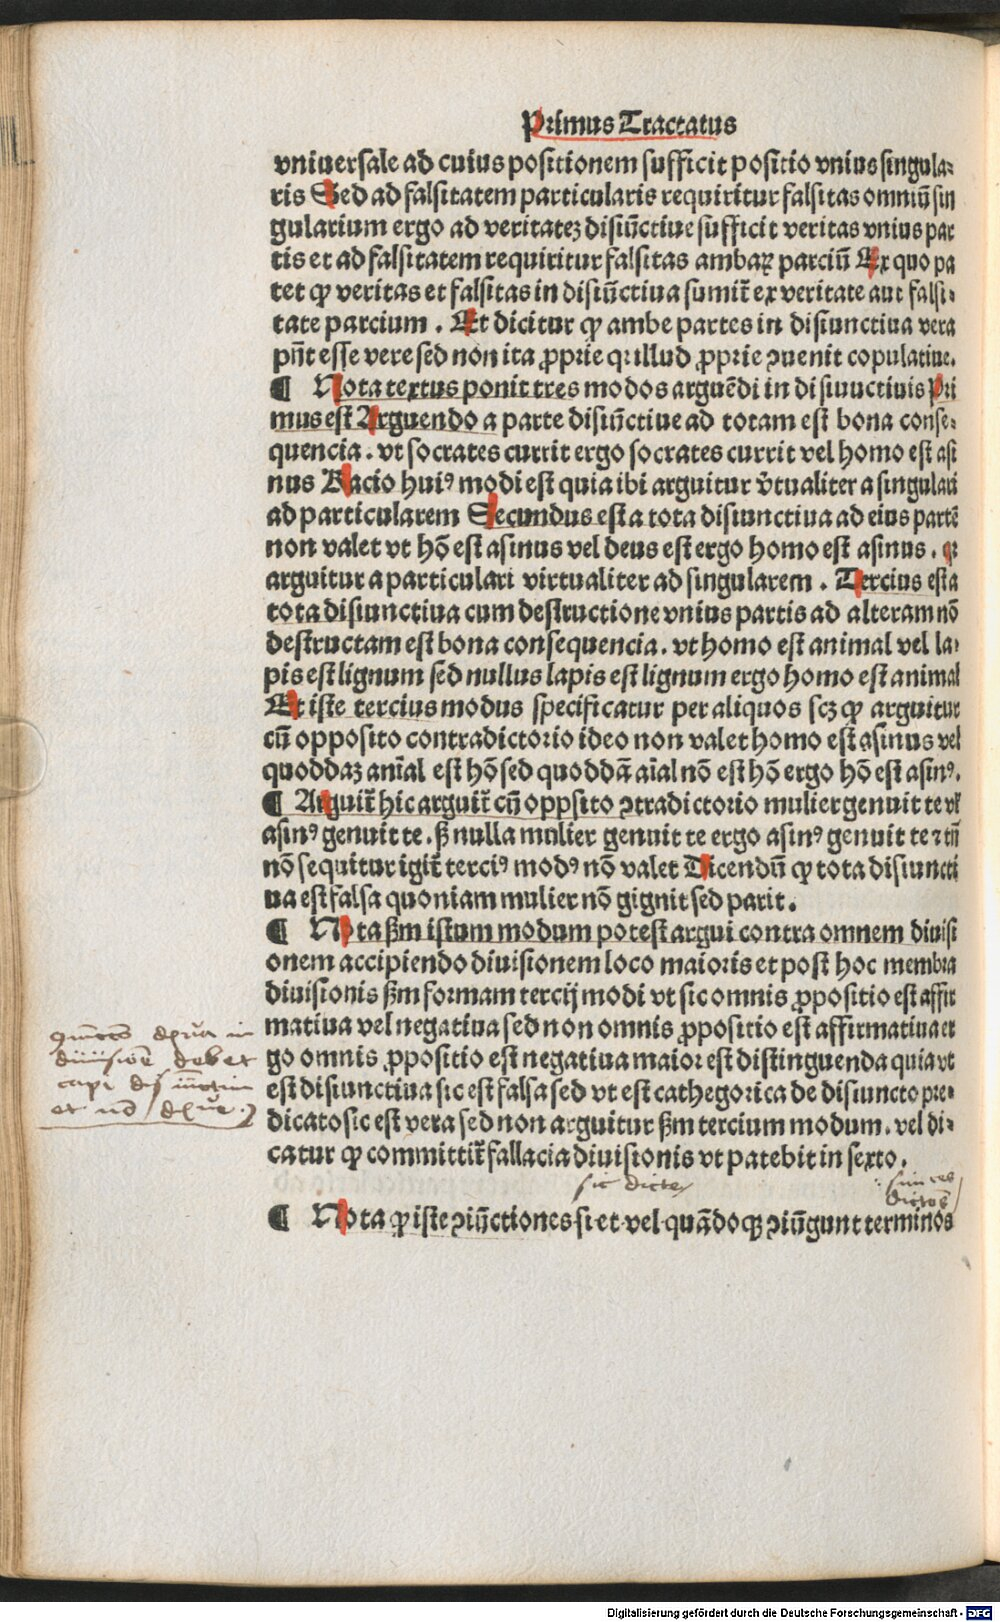 Primus Tractatus
vniuersale ad cuius positionem sufficit positio vnius singula⸗
ris Sed ad falsitatem particularis requiritur falsitas omniū sin
gularium ergo ad veritateꝫ disiūctiue sufficit veritas vnius par
tis et ad falsitatem requiritur falsitas ambaꝝ parciū Ex quo pa
tet ꝙ veritas et falsitas in disiūctiua sumit᷑ ex veritate aut falsi⸗
tate parcium . Et dicitur ꝙ ambe partes in disiunctiua vera
pn̄t esse vere sed non ita ꝓprie qr illud ꝓprie ꝯuenit copulatiue.
¶ Nota textus ponit tres modos arguēdi in disiuuctiuis Pri
mus est Arguendo a parte disiūctiue ad totam est bona conse⸗
quencia . vt socrates currit ergo socrates currit vel homo est asi
nus Racio huiꝰ modi est quia ibi arguitur v̓tualiter a singulari
ad particularem Secundus est a tota disiunctiua ad eius partē
non valet vt hō est asinus vel deus est ergo homo est asinus . qr
arguitur a particulari virtualiter ad singularem . Tercius est a
tota disiunctiua cum destructione vnius partis ad alteram nō
destructam est bona consequencia . vt homo est animal vel la⸗
pis est lignum sed nullus lapis est lignum ergo homo est animal
Et iste tercius modus specificatur per aliquos scꝫ ꝙ arguitur
cū opposito contradictorio ideo non valet homo est asinus vel
quoddaꝫ anīal est hō sed quoddā aīal nō est hō ergo hō est asinꝰ.
¶ Arguit᷑ hic arguit᷑ cū oppsito ꝯtradictorio mulier genuit te vl̓
asinꝰ genuit te . sꝫ nulla mulier genuit te ergo asinꝰ genuit te ⁊ tn̄
nō sequitur igit᷑ terciꝰ modꝰ nō valet Dicendū ꝙ tota disiuncti
ua est falsa quoniam mulier nō gignit sed parit .
¶ Nota ẜm istum modum potest argui contra omnem diuisi
onem accipiendo diuisionem loco maioris et post hoc membra
diuisionis ẜm formam tercij modi vt sic omnis ꝓpositio est affir
matiua vel negatiua sed non omnis ꝓpositio est affirmatiua er
go omnis ꝓpositio est negatiua maior est distinguenda quia vt
est disiunctiua sic est falsa sed vt est cathegorica de disiuncto pre⸗
dicato sic est vera sed non arguitur ẜm tercium modum . vel di⸗
catur ꝙ committit᷑ fallacia diuisionis vt patebit in sexto .
diuisiōe debet
capi
et nō
sic dicte
dictos
¶ Nota ꝙ iste ꝯiūctiones si et vel quādoqꝫ ꝯiūgunt terminos